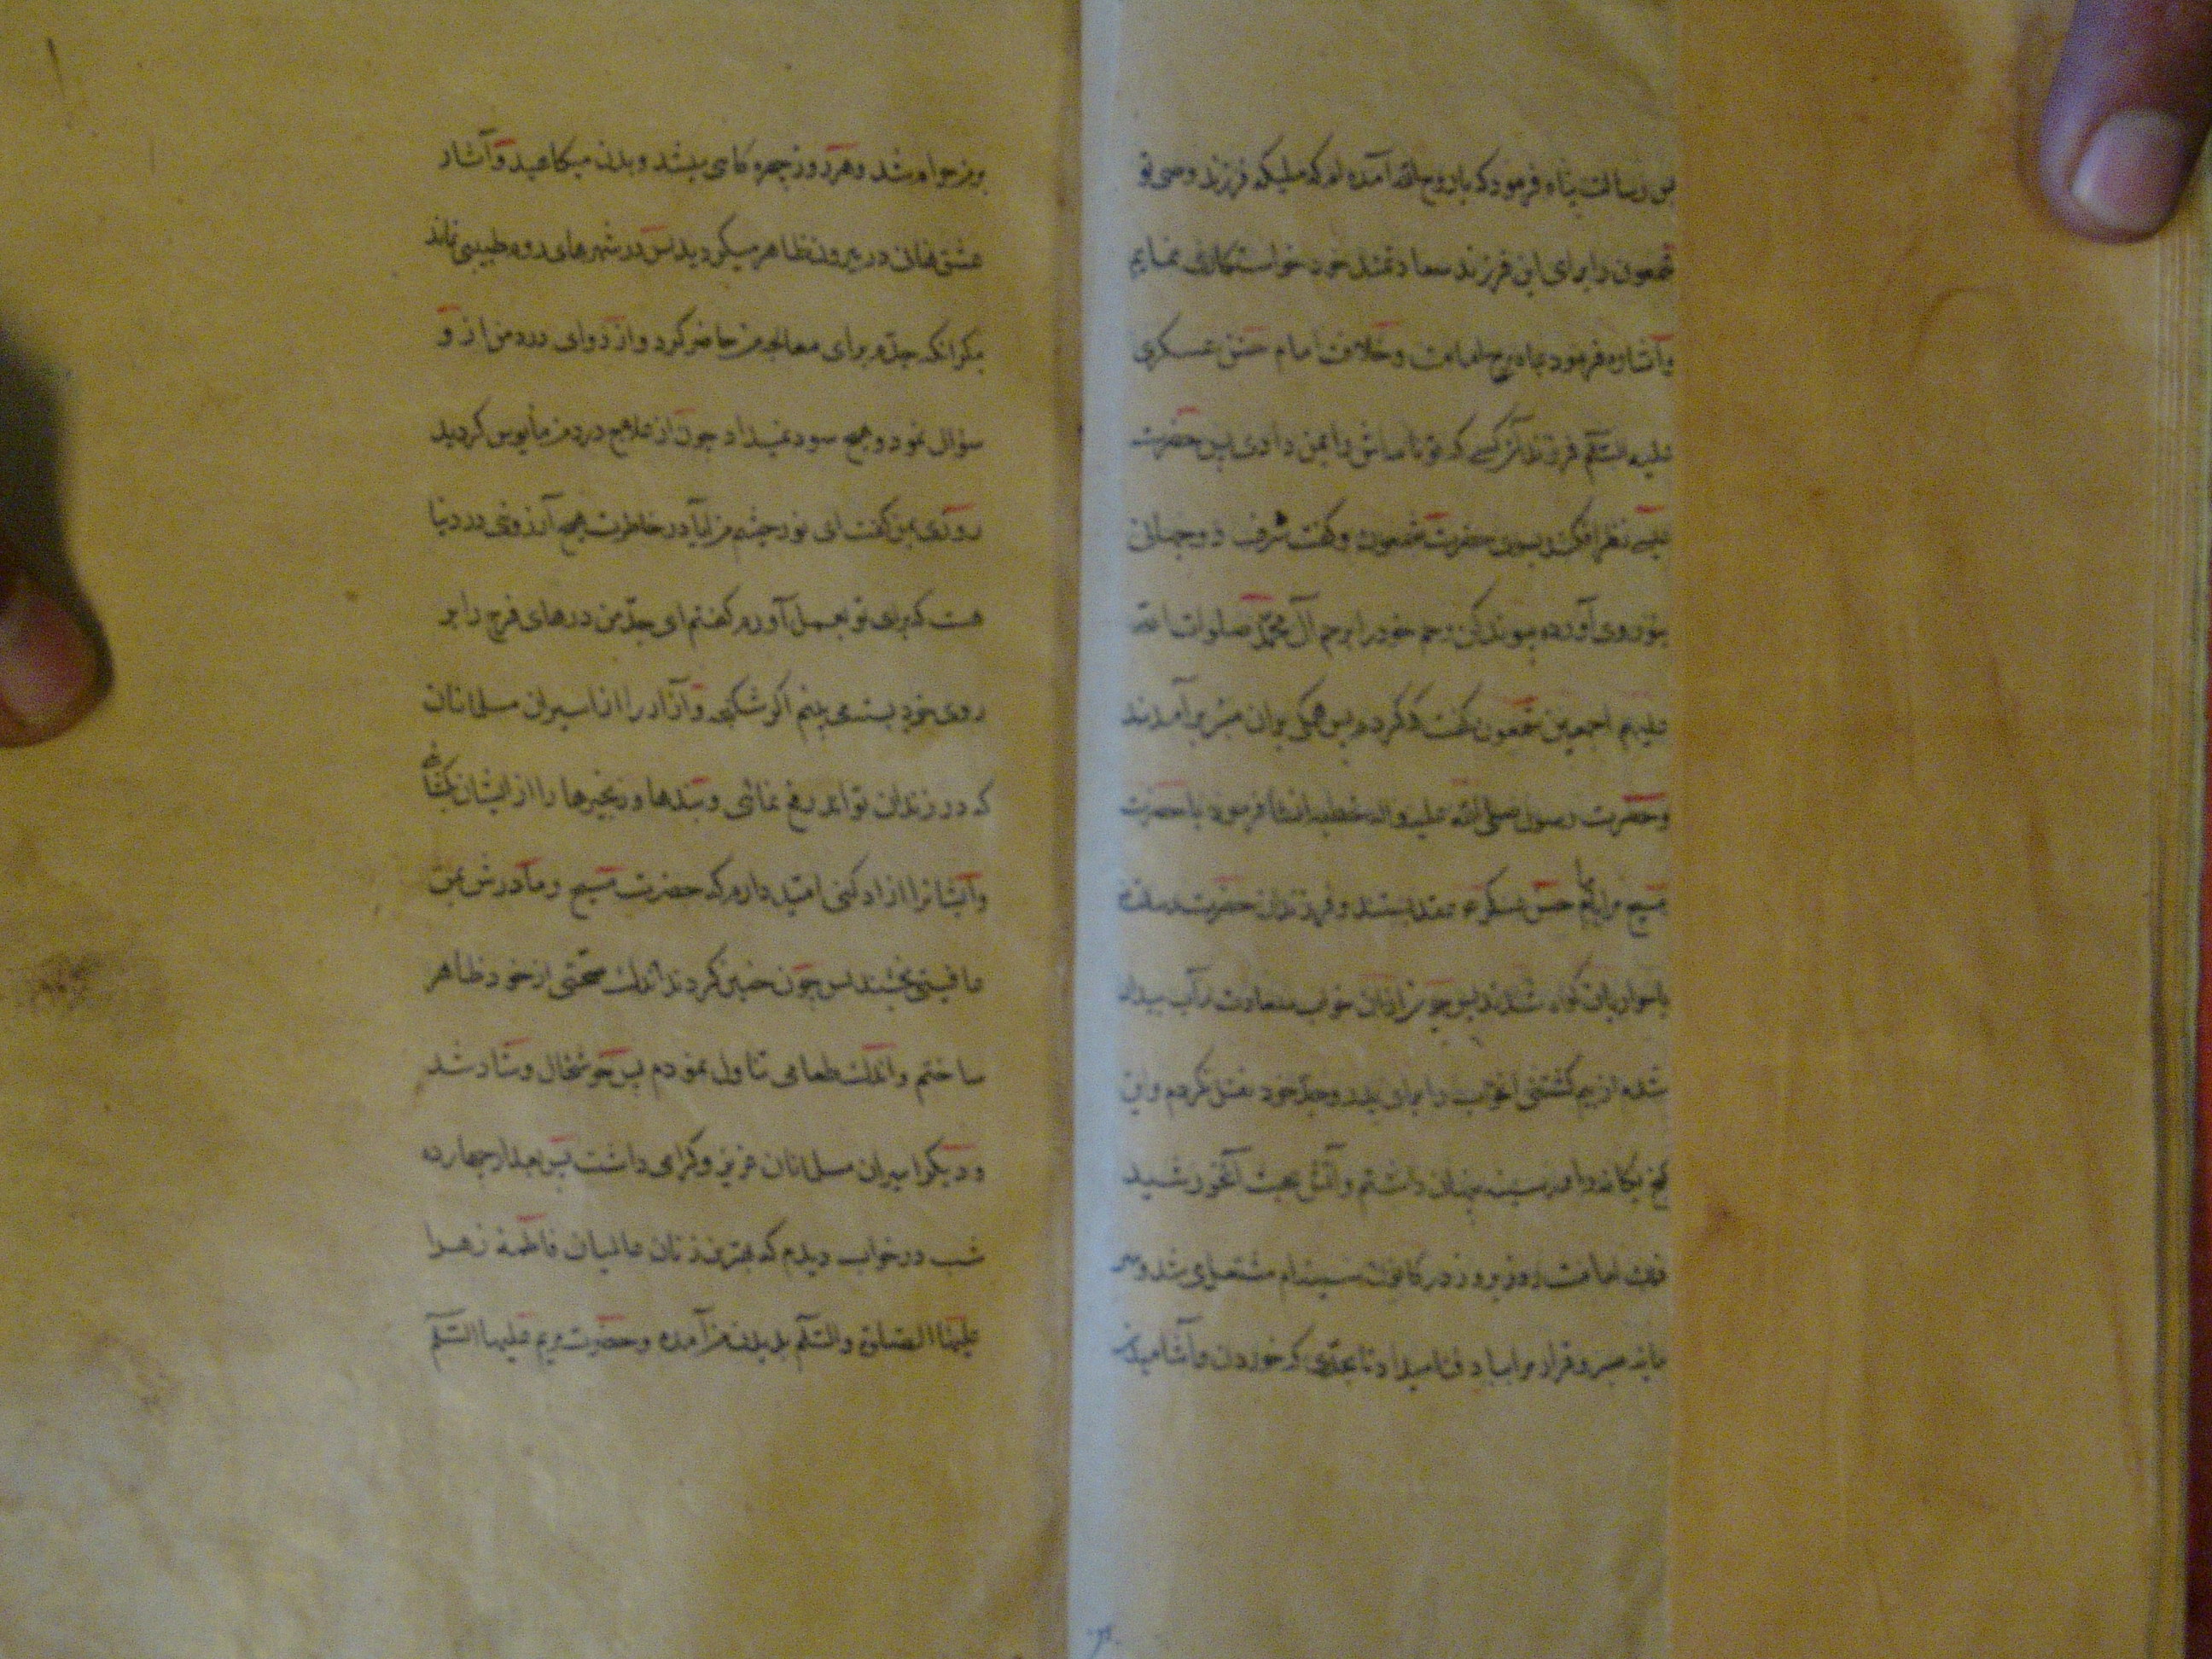 پس رسالت پناه فرمود که یا روح الله آمده ام که ملیکه فرزند وصی تو
شمعون را برای این فرزند سعادتمند خود خواستکاری نمایم
و آشاره فرمود بماه برج امامت و خلافت امام حسن عسکری
علیه السلم فرزند آن کسی که تو نامه اش را بمن دادی پس حضرت
عیسی نظر افکند بسوی حضرت شمعون و کفت شرف دو جهانی
بتو روی آورده پیوند کن رحم خود را برحم آل محمد صلوات الله
علیهم اجمعین شمعون کفت که کردم پس همکی بران منبر برآمدند
و حضرت رسول صلی الله علیه و اله خطبه انشا فرمود با حضرت
مسیح مرا بامام حسن عسکری ع عقد بستند و فرزندان حضرت رسالت
با حواریان کواه شدند پس چون ازان خواب سعادت مآب بیدار
شدم از بیم کشتن آنخواب را برای پدر و جد خود نقل نکردم و این
کنج یکانه را در سینه پنهان داشتم و آتش محبت آنخورشید
فلک امامت روز بروز در کانون سینه ام مشتعل می شد و سر
مایه صبر و قرار مرا بباد فنا میداد تا بحدی که خوردن و آشامیدن
بر من حرام شد و هر روز چهره کاهی میشد و بدن میکاهید و آثار
عشق نهانی در بیرون ظاهر میکردید پس در شهرهای روم طبیبی نماند
مکر آنکه جدم برای معالجه من حاضر کرد و از دوای درد من از و
سؤال نمود و هیچ سود نمیداد چون از علاج درد من مأیوس کردید
روزی بمن کفت ای نور چشم من آیا در خاطرت هیچ آرزوئی در دنیا
هست که برای تو بعمل آورم کفتم ای جد من درهای فرج را بر
روی خود بسته می بینم اکر شکنجه و آزار را از اسیران مسلمانان
که در زندان تواند رفع نمائی و بندها و زنجیرها را از ایشان بکشائی
و آیشانرا ازاد کنی امید دارم که حضرت مسیح و مادرش بمن
عافیتی بخشند پس چون چنین کردند اندک صحتی از خود ظاهر
ساختم و اندک طعامی تناول نمودم پس خوشحال و شاد شد
و دیکر اسیران مسلمانان عزیز و کرامی داشت پس بعد از چهارده
شب در خواب دیدم که بهترین زنان عالمیان فاطمه زهرا
علیها الصلوة والسلم بدیدن من آمده و حضرت مریم علیها السلم